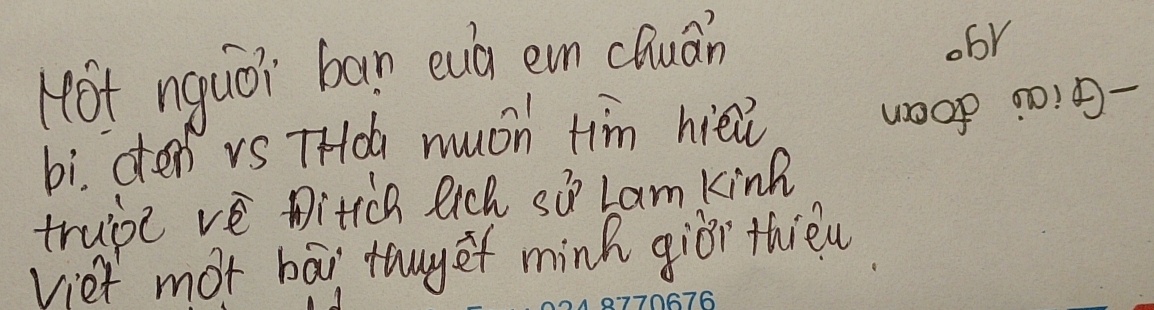 Một người bạn của em chuẩn
bị. đến vs THoá muốn tìm hiểu
trước về Di tích lịch sử Lam Kinh
Viết một bài thuyết minh giới thiệu.
- Giai đoạn
8770676